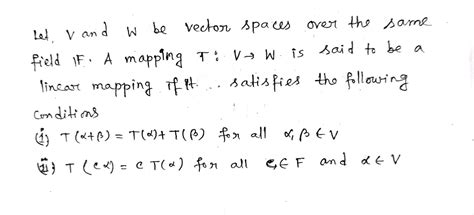 Let, V and W be vector spaces over the same
field F. A mapping T : V → W is said to be a
linear mapping if it ... satisfies the following
conditions
(i) T(α+β) = T(α) + T(β) for all α, β ∈ V
(ii) T(cα) = c T(α) for all c ∈ F and α ∈ V